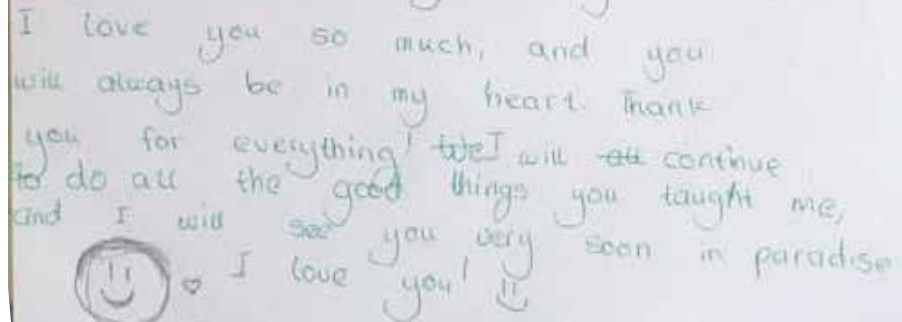 I love you so much, and you
will always be in my heart. Thank
you for everything! We I will all continue
to do all the good things you taught me,
and I will see you very soon in paradise
♡ I love you!